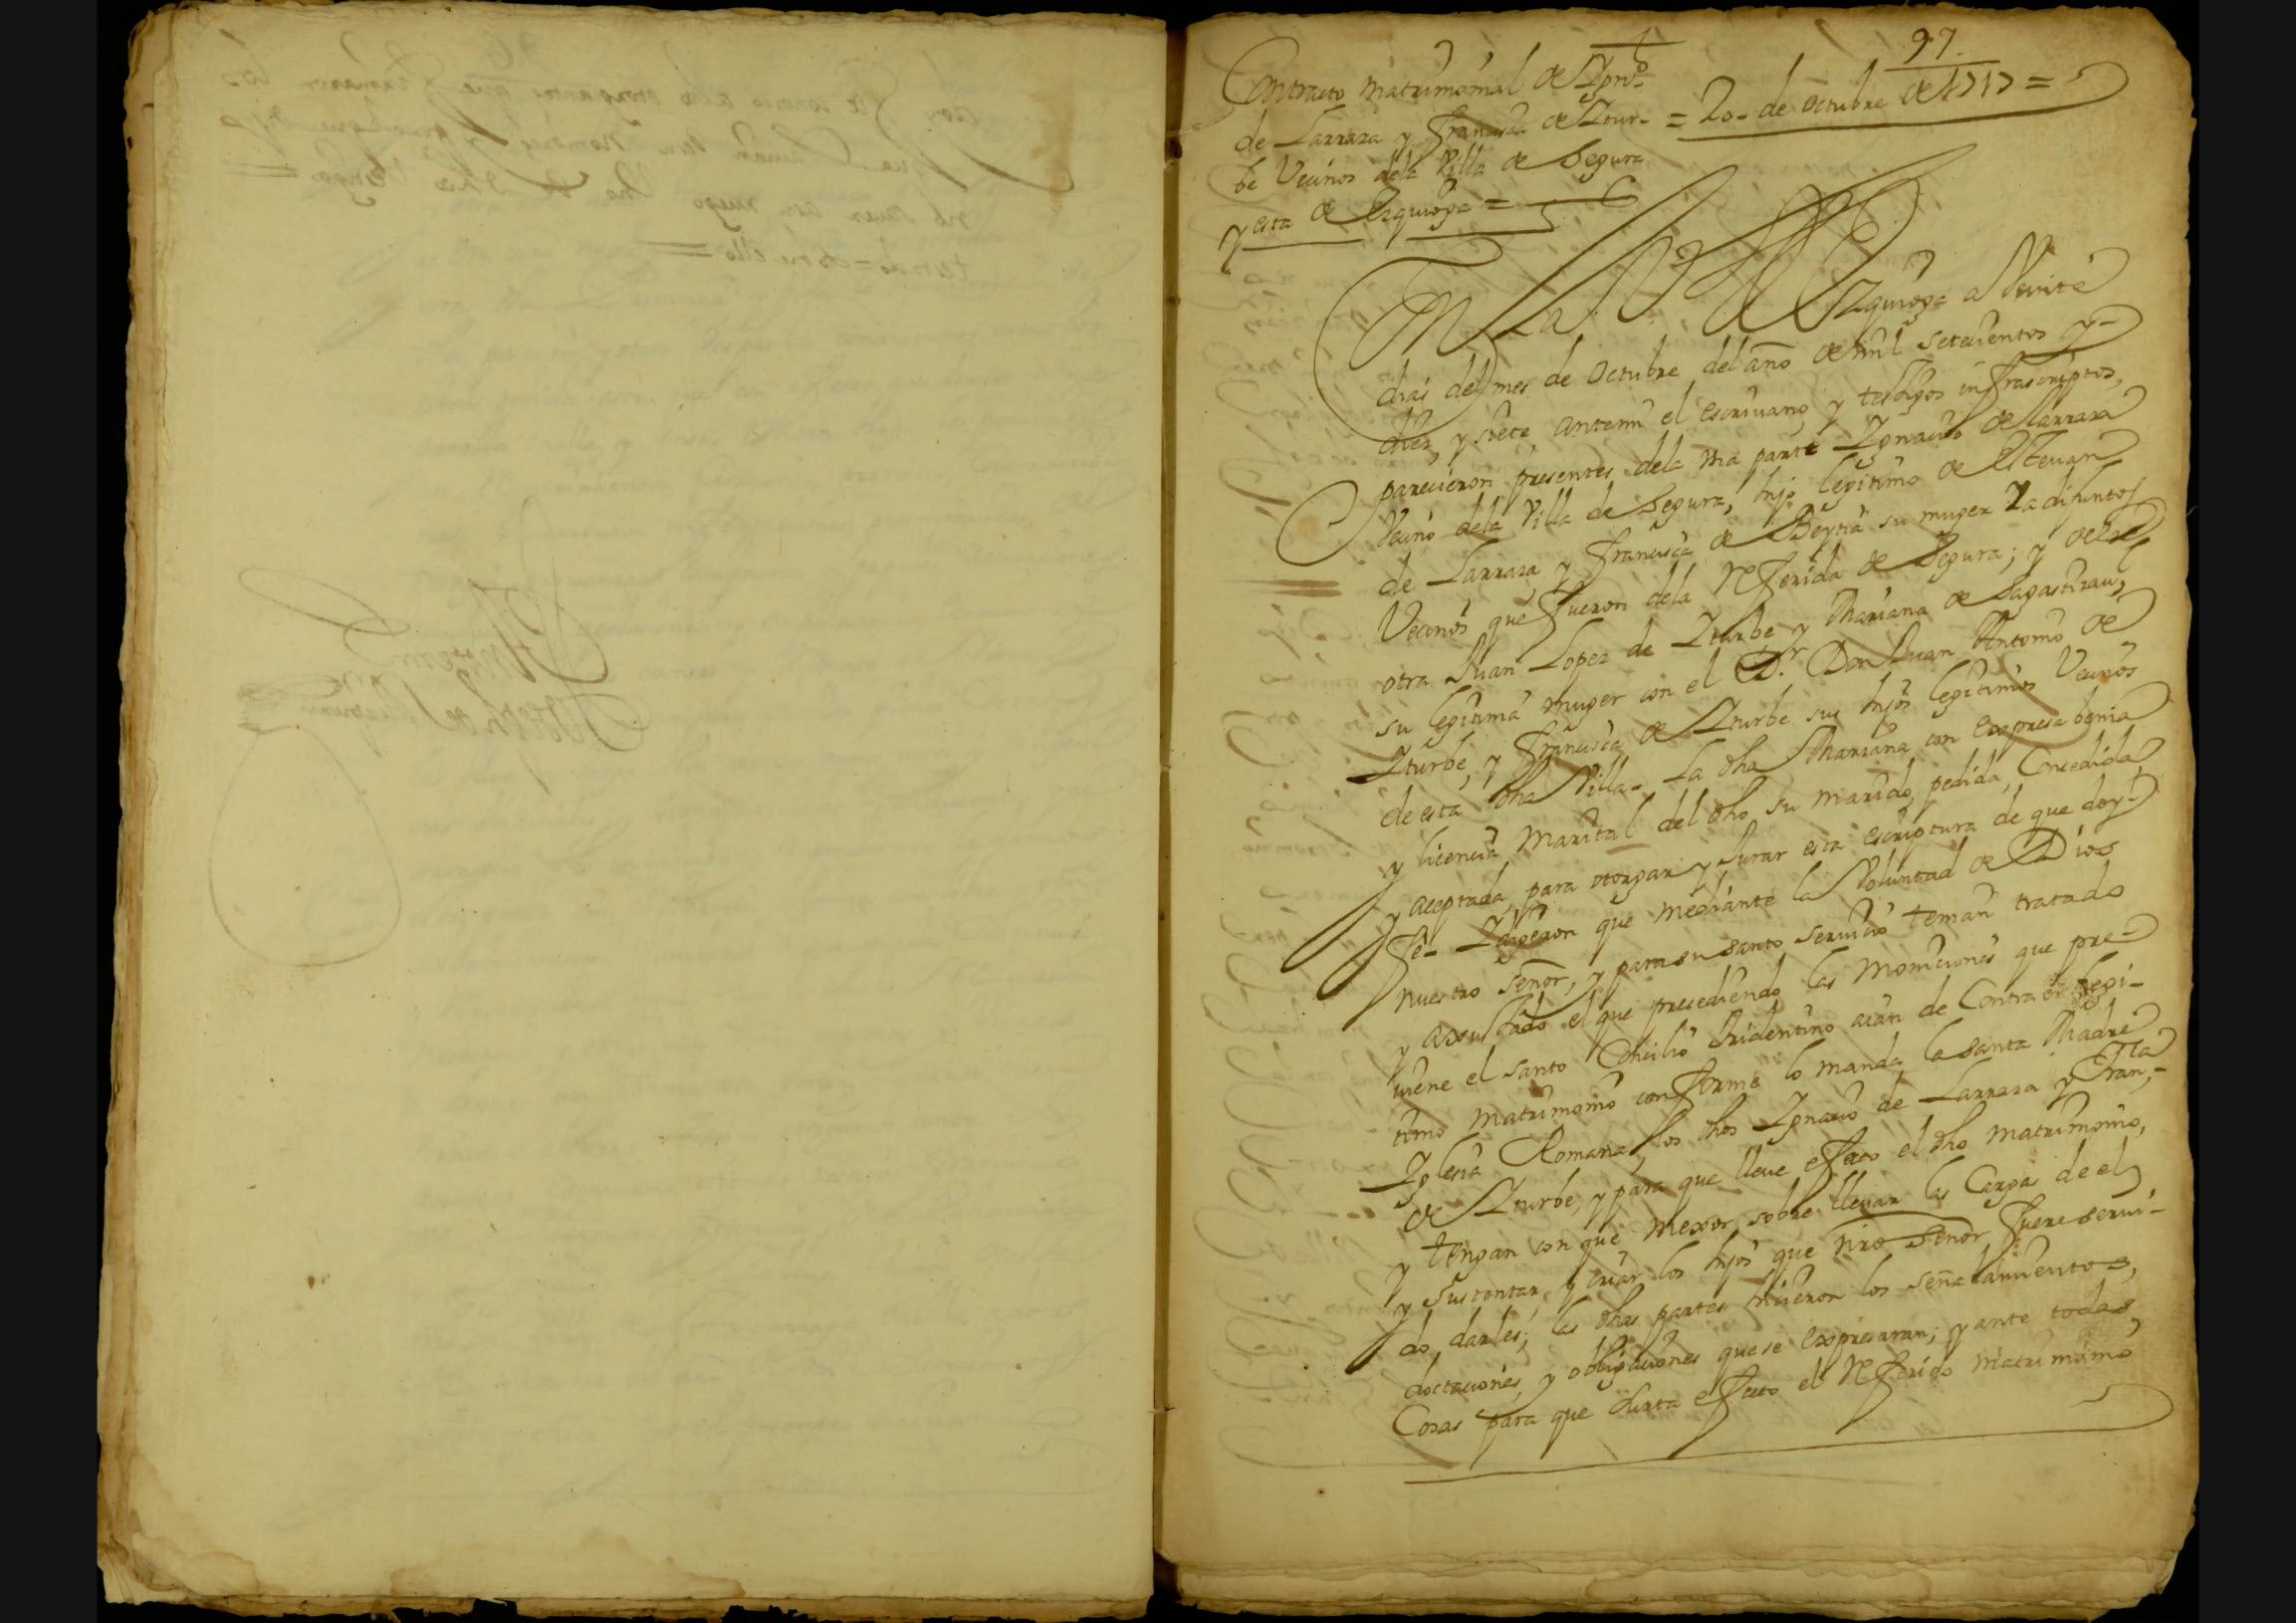 97
Contracto matrimonial de Ygnº
de Larraza y Francisca de Ytur- = 20 - de octubre de 1717 =
be Vecinos dela Villa de Segura
y esta de Ezquioga =
En La Villa de Ezquioga a Veinte
dias del mes de octubre del año de mil setecientos y
diez, y siete, antemi el escrivano, y testigos infrascriptos,
parecieron presentes dela una parte Ygnacio de Larraza
Vecino dela Villa de Segura, hijo legitimo de Estevan
de Larraza y Francisca de Beytia su muger Ya difuntos
Vecinos que fueron dela referida de Segura; y dela
otra Juan Lopez de Yturbe y Mariana de Sagastizau,
su legitima muger con el D.r Don Juan Antonio de
Yturbe, y Francisca de Yturbe sus hijos legitimos Vecinos
de esta dha Villa- La dha Mariana con expresa benia
y licencia Marital del dho su marido, pedida, Concedida
y aceptada, para otorgar y Jurar esta escriptura de que doy
fe- Y dixeron que mediante la Voluntad de Dios
nuestro señor, y para su santo servicio tenian tratado
y axustado el que precediendo las moniciones que pre-
viene el santo Concilio Tridentino aian de Contraer legi-
timo matrimonio conforme lo manda la santa Madre
Yglesia Romana, los dhos Ygnacio de Larraza y Fran,ca
de Yturbe, y para que lleve efecto el dho matrimonio,
y tengan con que mexor sobrellevar las Cargas de el
y sustentar, y criar los hijos que nro señor fuere servi-
do darles; las dhas partes hicieron los señalamientos,
doctaciones, y obligaciones que se expresaran; y ante todas
Cosas para que surta efecto el referido matrimonio